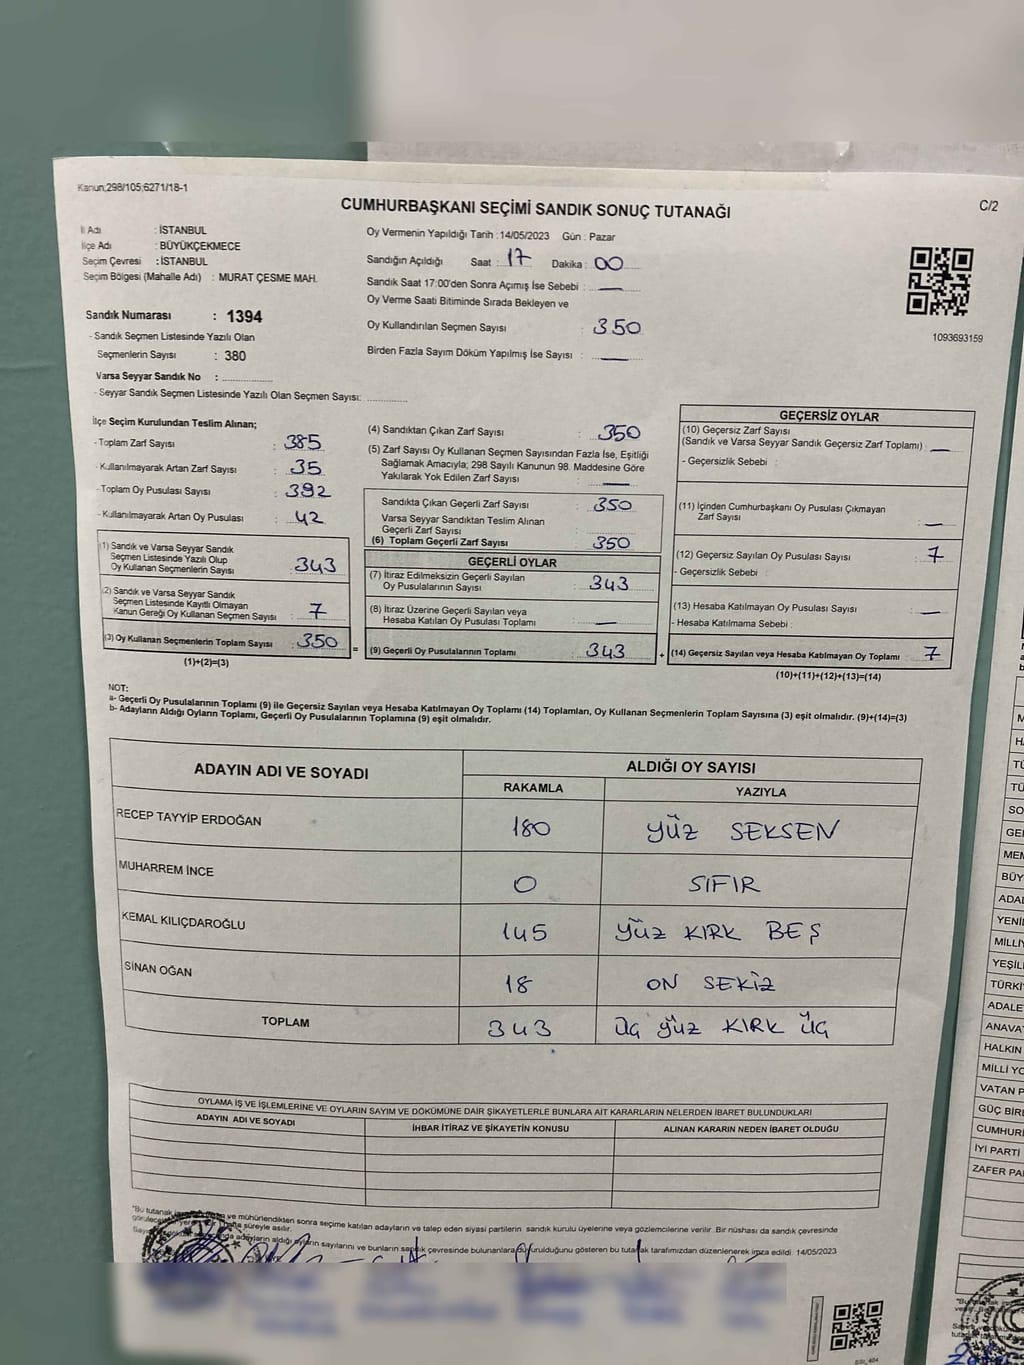 Kanun;298/105;6271/18-1
C/2
CUMHURBAŞKANI SEÇİMİ SANDIK SONUÇ TUTANAĞI
İl Adı : İSTANBUL
İlçe Adı : BÜYÜKÇEKMECE
Seçim Çevresi : İSTANBUL
Seçim Bölgesi (Mahalle Adı) : MURAT ÇESME MAH.
Sandık Numarası : 1394
- Sandık Seçmen Listesinde Yazılı Olan
Seçmenlerin Sayısı : 380
Varsa Seyyar Sandık No : ................
- Seyyar Sandık Seçmen Listesinde Yazılı Olan Seçmen Sayısı: ............
Oy Vermenin Yapıldığı Tarih :14/05/2023 Gün : Pazar
Sandığın Açıldığı Saat : 17 Dakika : 00
Sandık Saat 17:00'den Sonra Açımış İse Sebebi : —
Oy Verme Saati Bitiminde Sırada Bekleyen ve
Oy Kullandırılan Seçmen Sayısı : 350
Birden Fazla Sayım Döküm Yapılmış İse Sayısı : —
1093693159
İlçe Seçim Kurulundan Teslim Alınan;
- Toplam Zarf Sayısı : 385
- Kullanılmayarak Artan Zarf Sayısı : 35
- Toplam Oy Pusulası Sayısı : 392
- Kullanılmayarak Artan Oy Pusulası : 42
(1) Sandık ve Varsa Seyyar Sandık
Seçmen Listesinde Yazılı Olup
Oy Kullanan Seçmenlerin Sayısı : 343
(2) Sandık ve Varsa Seyyar Sandık
Seçmen Listesinde Kayıtlı Olmayan
Kanun Gereği Oy Kullanan Seçmen Sayısı : 7
(3) Oy Kullanan Seçmenlerin Toplam Sayısı : 350
(1)+(2)=(3)
(4) Sandıktan Çıkan Zarf Sayısı : 350
(5) Zarf Sayısı Oy Kullanan Seçmen Sayısından Fazla İse, Eşitliği
Sağlamak Amacıyla; 298 Sayılı Kanunun 98. Maddesine Göre
Yakılarak Yok Edilen Zarf Sayısı : —
Sandıkta Çıkan Geçerli Zarf Sayısı : 350
Varsa Seyyar Sandıktan Teslim Alınan
Geçerli Zarf Sayısı :
(6) Toplam Geçerli Zarf Sayısı : 350
GEÇERLİ OYLAR
(7) İtiraz Edilmeksizin Geçerli Sayılan
Oy Pusulalarının Sayısı : 343
(8) İtiraz Üzerine Geçerli Sayılan veya
Hesaba Katılan Oy Pusulası Toplamı : —
= (9) Geçerli Oy Pusulalarının Toplamı : 343
GEÇERSİZ OYLAR
(10) Geçersiz Zarf Sayısı
(Sandık ve Varsa Seyyar Sandık Geçersiz Zarf Toplamı) : —
- Geçersizlik Sebebi :
(11) İçinden Cumhurbaşkanı Oy Pusulası Çıkmayan
Zarf Sayısı : —
(12) Geçersiz Sayılan Oy Pusulası Sayısı : 7
- Geçersizlik Sebebi :
(13) Hesaba Katılmayan Oy Pusulası Sayısı : —
- Hesaba Katılmama Sebebi :
+ (14) Geçersiz Sayılan veya Hesaba Katılmayan Oy Toplamı : 7
(10)+(11)+(12)+(13)=(14)
NOT:
a- Geçerli Oy Pusulalarının Toplamı (9) ile Geçersiz Sayılan veya Hesaba Katılmayan Oy Toplamı (14) Toplamları, Oy Kullanan Seçmenlerin Toplam Sayısına (3) eşit olmalıdır. (9)+(14)=(3)
b- Adayların Aldığı Oyların Toplamı, Geçerli Oy Pusulalarının Toplamına (9) eşit olmalıdır.
ADAYIN ADI VE SOYADI
ALDIĞI OY SAYISI
RAKAMLA YAZIYLA
RECEP TAYYİP ERDOĞAN 180 YÜZ SEKSEN
MUHARREM İNCE 0 SIFIR
KEMAL KILIÇDAROĞLU 145 YÜZ KIRK BEŞ
SİNAN OĞAN 18 ON SEKİZ
TOPLAM 343 ÜÇ YÜZ KIRK ÜÇ
OYLAMA İŞ VE İŞLEMLERİNE VE OYLARIN SAYIM VE DÖKÜMÜNE DAİR ŞİKAYETLERLE BUNLARA AİT KARARLARIN NELERDEN İBARET BULUNDUKLARI
ADAYIN ADI VE SOYADI İHBAR İTİRAZ VE ŞİKAYETİN KONUSU ALINAN KARARIN NEDEN İBARET OLDUĞU
"Bu tutanak ve mühürlendikten sonra seçime katılan adayların ve talep eden siyasi partilerin sandık kurulu üyelerine veya gözlemcilerine verilir. Bir nüshası da sandık çevresinde
süreyle asılır.
adayların aldığı oyların sayılarını ve bunların sandık çevresinde bulunanlara duyurulduğunu gösteren bu tutanak tarafımızdan düzenlenerek imza edildi. 14/05/2023
YENİ
MİLLİ
YEŞİL
TÜRKİ
ADALE
ANAVA
HALKIN
MİLLİ YO
VATAN P
GÜÇ BİR
CUMHUR
İYİ PARTİ
ZAFER PA